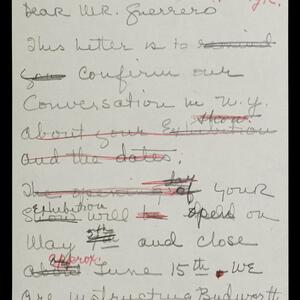 Dear Mr. Guerrero
This letter is to remind
you confirm our
Conversation in N.Y.
about your Exhibition show
and the dates.
The opening day of your
Exhibition
Show will be open on
May 7th and close
approx.
about June 15th. We
are instructing Budworth